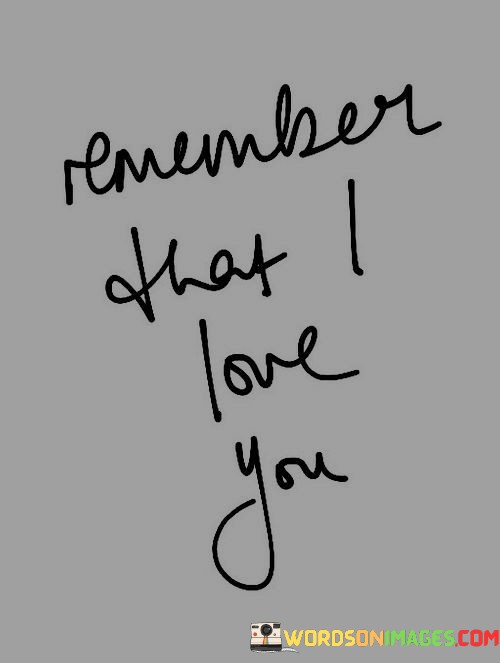 remember
that I
love
you
WORDSONIMAGES.COM